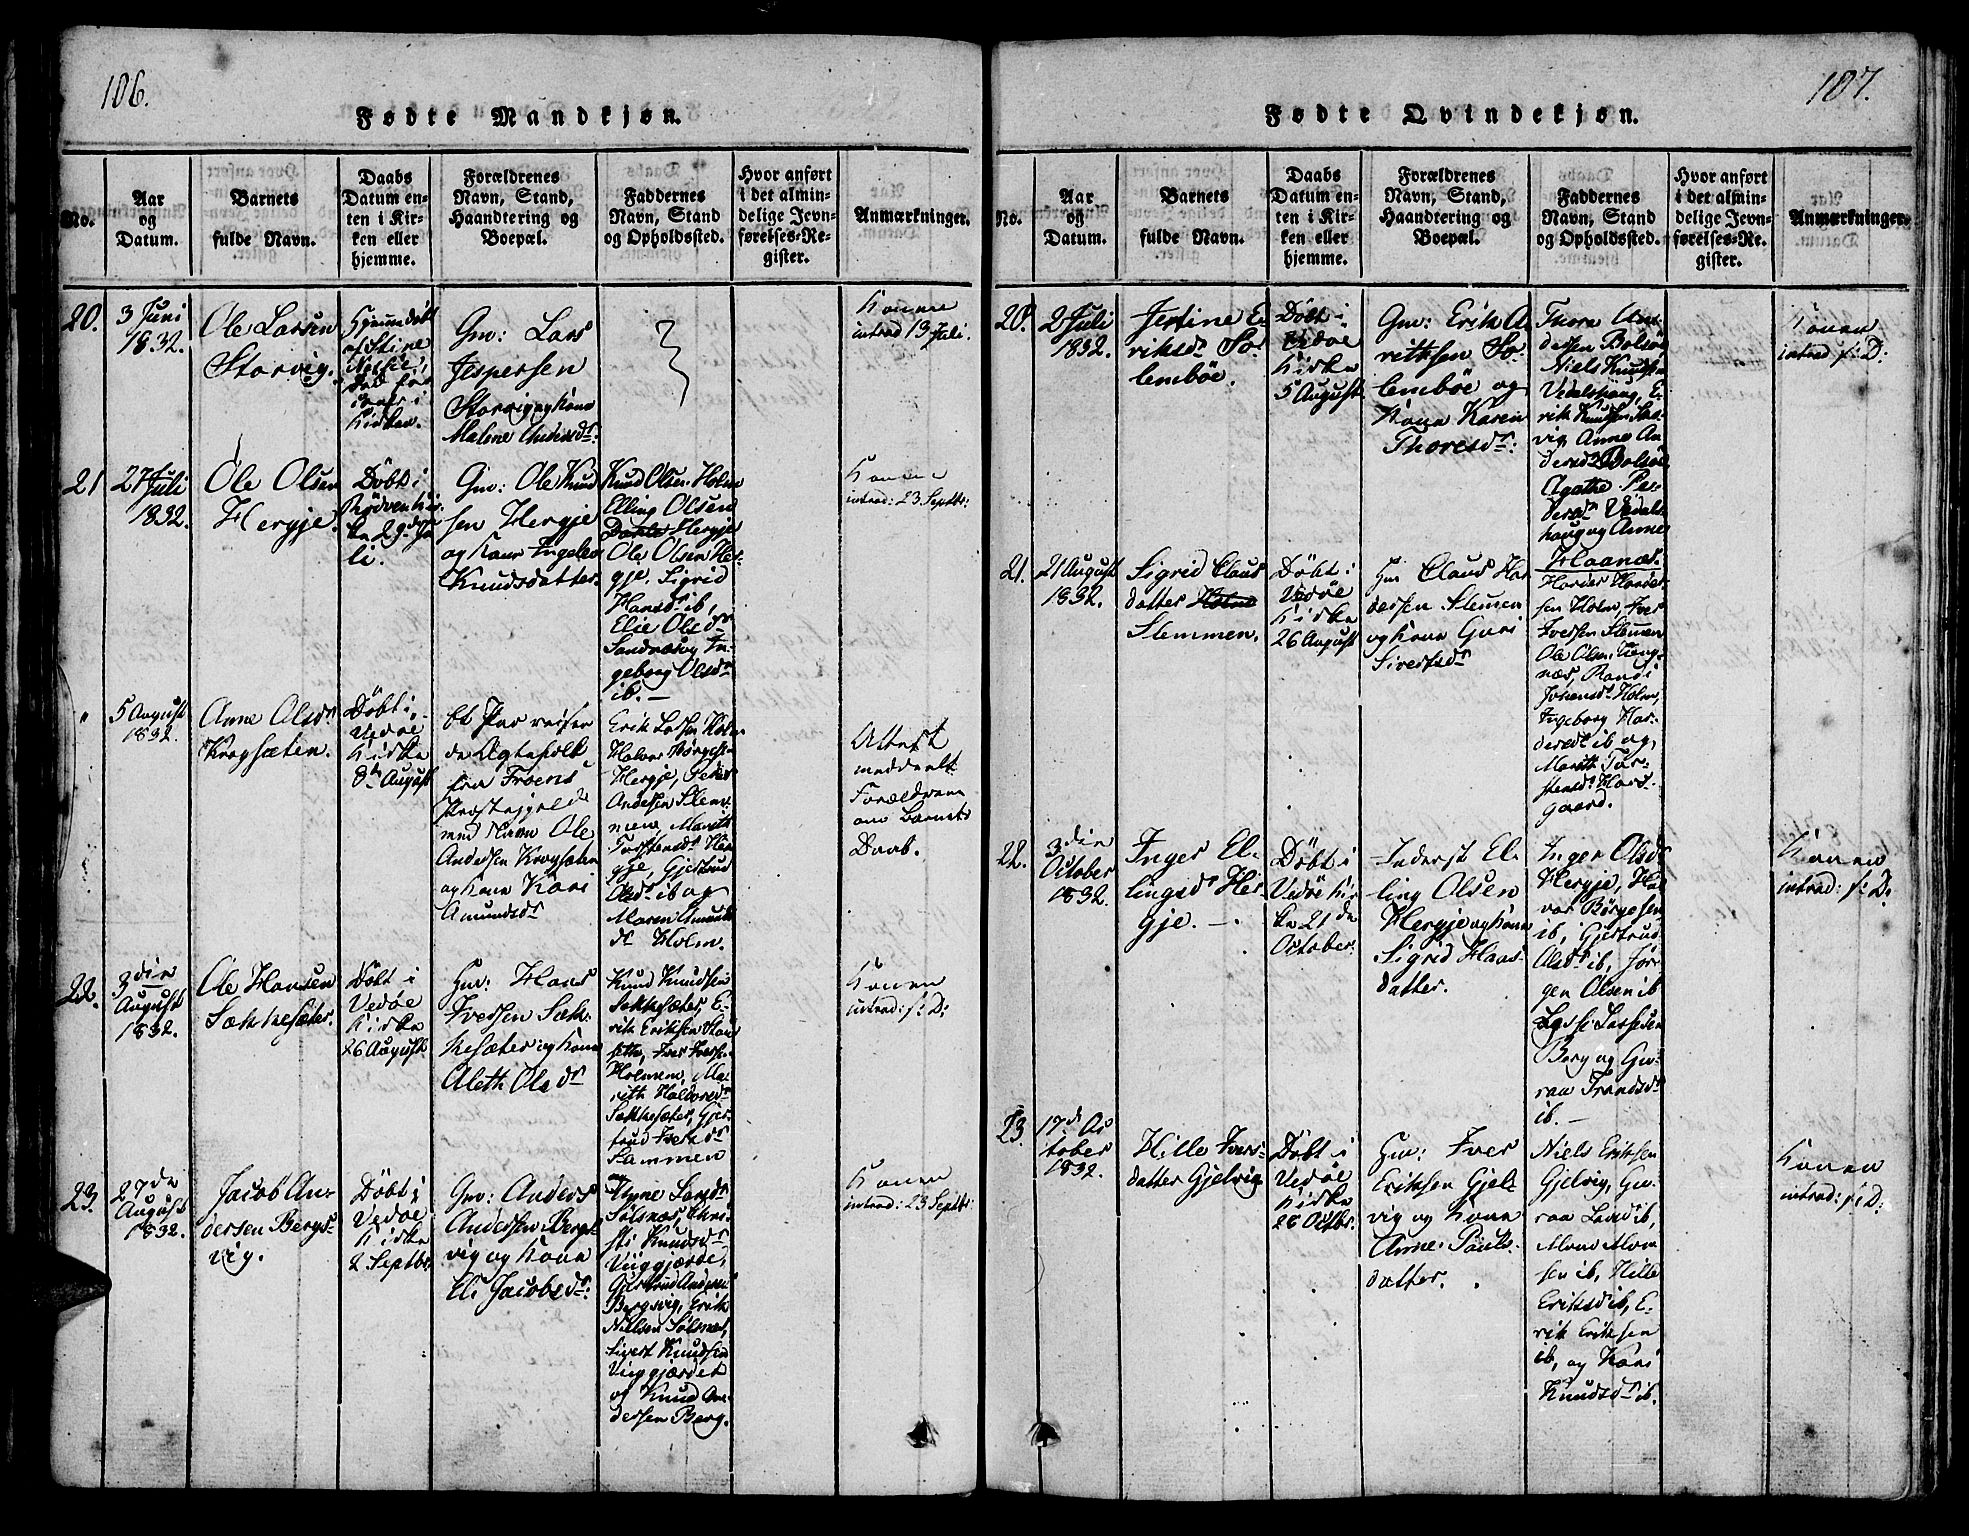 106.
Fødte Mandkjøn.
No.
Aar
og
Datum.
Barnets
fulde Navn.
Daabs
Datum en-
ten i Kir-
ken eller
hjemme.
Forældrenes
Navn, Stand,
Haandtering og
Boepæl.
Faddernes
Navn, Stand
og Opholdssted.
Hvor anført
i det almin-
delige Jevn-
førelses-Re-
gister.
Anmærkninger.
20.
3 Juni
1832.
Ole Larsen
Storvig.
Hjemmedøbt
af Stine
i
Kirken.
Gm: Lars
Jespersen
Storvig og Kone
Malene Andersdr:
Konen
introd 13 Juli.
21
27 Juli
1832.
Ole Olsen
Hergje.
Døbt i
Rødven Kir-
ken 29de Ju
li.
Gm: Ole Knud
sen Hergje
og Kone Ingebor
Knudsdatter.
Knud Olsen Holm
Elling Olsen
Hergje
Ole Olsen Her-
gje. Sigrid
Hansdr ib,
Elie Olsdr
Sandnæs og In-
geborg Olsdr
ib. —
Konen
introd: 23 Septbr:
"
5 August
1832.
Anne Olsdr
Krogsæten.
Døbt i
Vedøe
Kirke
d. August
Et Par reisen
de Ægtefolk
fra Froens
Præstegjeld
med Navn Ole
Andersen Krogsæten
og Kone Kari
Amundsdr
Erik Lassen Holm
Halvor Børgesen
Hergje, Peder
Andersen Slem-
men, Marith
Torstensdr Her
gje, Gjertrud
Olsdr ib og
Maren Amunds
dr Holm.
Attest
meddeelt
Forældrene
om Barnets
Daab.
22.
3 den
August
1832.
Ole Hansen
Sækkesæter.
Døbt i
Vedøe
Kirke
26 August
Gm: Hans
Iversen Sæk-
kesæter og Kone
Aleth Olsdr
Knud Knudsen
Sækkesæter, E-
rik Eriksen Stor
sæter, Iver Iverse
Holmem, Ma-
rith Halvorsd
Sækkesæter, Gjer-
trud Iversdr
Slammen
Konen
introd: s: D:
23.
27 de
August
1832.
Jacob An-
dersen Bergs-
vig.
Døbt i
Vedøe
Kirke
2 Septbr.
Gm: Anders
Andersen Bergs-
vig og Kone
Eli Jacobsdr:
Anne Larsdr
Sølsnæs, Chri-
sti Knudsdr
Viiggjerde,
Gjertrud Andersdr
Bergsvig, Erik
Nielsen Sølsnæs,
Sivert Knudsen
Viiggjerdet
og Knud An-
dersen Berg.
Konen
introd: 23 Septbr:
107.
Fødte Qvindekjøn.
No.
Aar
og
Datum.
Barnets
fulde Navn.
Daabs
Datum en-
ten i Kir-
ken eller
hjemme.
Forældrenes
Navn, Stand,
Haandtering og
Boepæl.
Faddernes
Navn, Stand
og Opholdssted.
Hvor anført
i det almin-
delige Jevn-
førelses-Re-
gister.
Anmærkninger.
20.
2 Juli
1832.
Jertine E-
riksdr So-
lembøe.
Døbt i
Vedøe
Kirke
5 August
Gm: Erik A
rithsen So-
lembøe og
Kone Karen
Thoresdr:
Thore An-
dersen Bolsøe
Niels Knudsen
Vedalshaug, E-
rik Knudsen
vig Anne An
dersdr Bolsøe
Agathe Pe-
dersdr Vedals
haug og Anne
Haanæs.
Konen
introd s: D:
21.
21 August
1832.
Sigrid Claus
datter Holme
Slemmen.
Døbt i
Vedøe
Kirke
26 August
Gm Claus Hal
dersen Slemen
og Kone Guri
Sivertsdr
Holm, Iver
Iversen Slemmen
Ole Olsen
næs, Randi
Johansdr Holm,
Ingeborg Hal-
dersdr ib og
Marith Tor-
stensdr
gaard.
22.
3 den
October
1832.
Inger El-
lingsdr Her-
gje. —
Døbt i
Vedøe Kir
ke 21 de
October.
Inderst El-
ling Olsen
Hergje og Kone
Sigrid Hans-
datter.
Inger Olsdr
Hergje, Hal
vor Børgesen
ib, Gjertrud
Olsdr ib, Jør-
gen Olsen ib
Lasse Lassesen
Berg og Gu-
raa Trondsdr
ib. —
Konen
introd: s: D:
23.
17. d Oc
tober
1832.
Hille Ivers-
datter Gjelvig
Døbt i
Vedøe
Kirke
28 Octbr.
Gm: Iver
Eriksen Gjel-
vig og Kone
Anne Pouls-
datter.
Niels Eriksen
Gjelvig, Gu-
raa Larsd ib,
sen ib, Hille
Eriksd ib, E-
rik Eriksen
ib, og Kari
Knudsdr ib.
Konen
introd: s: D: